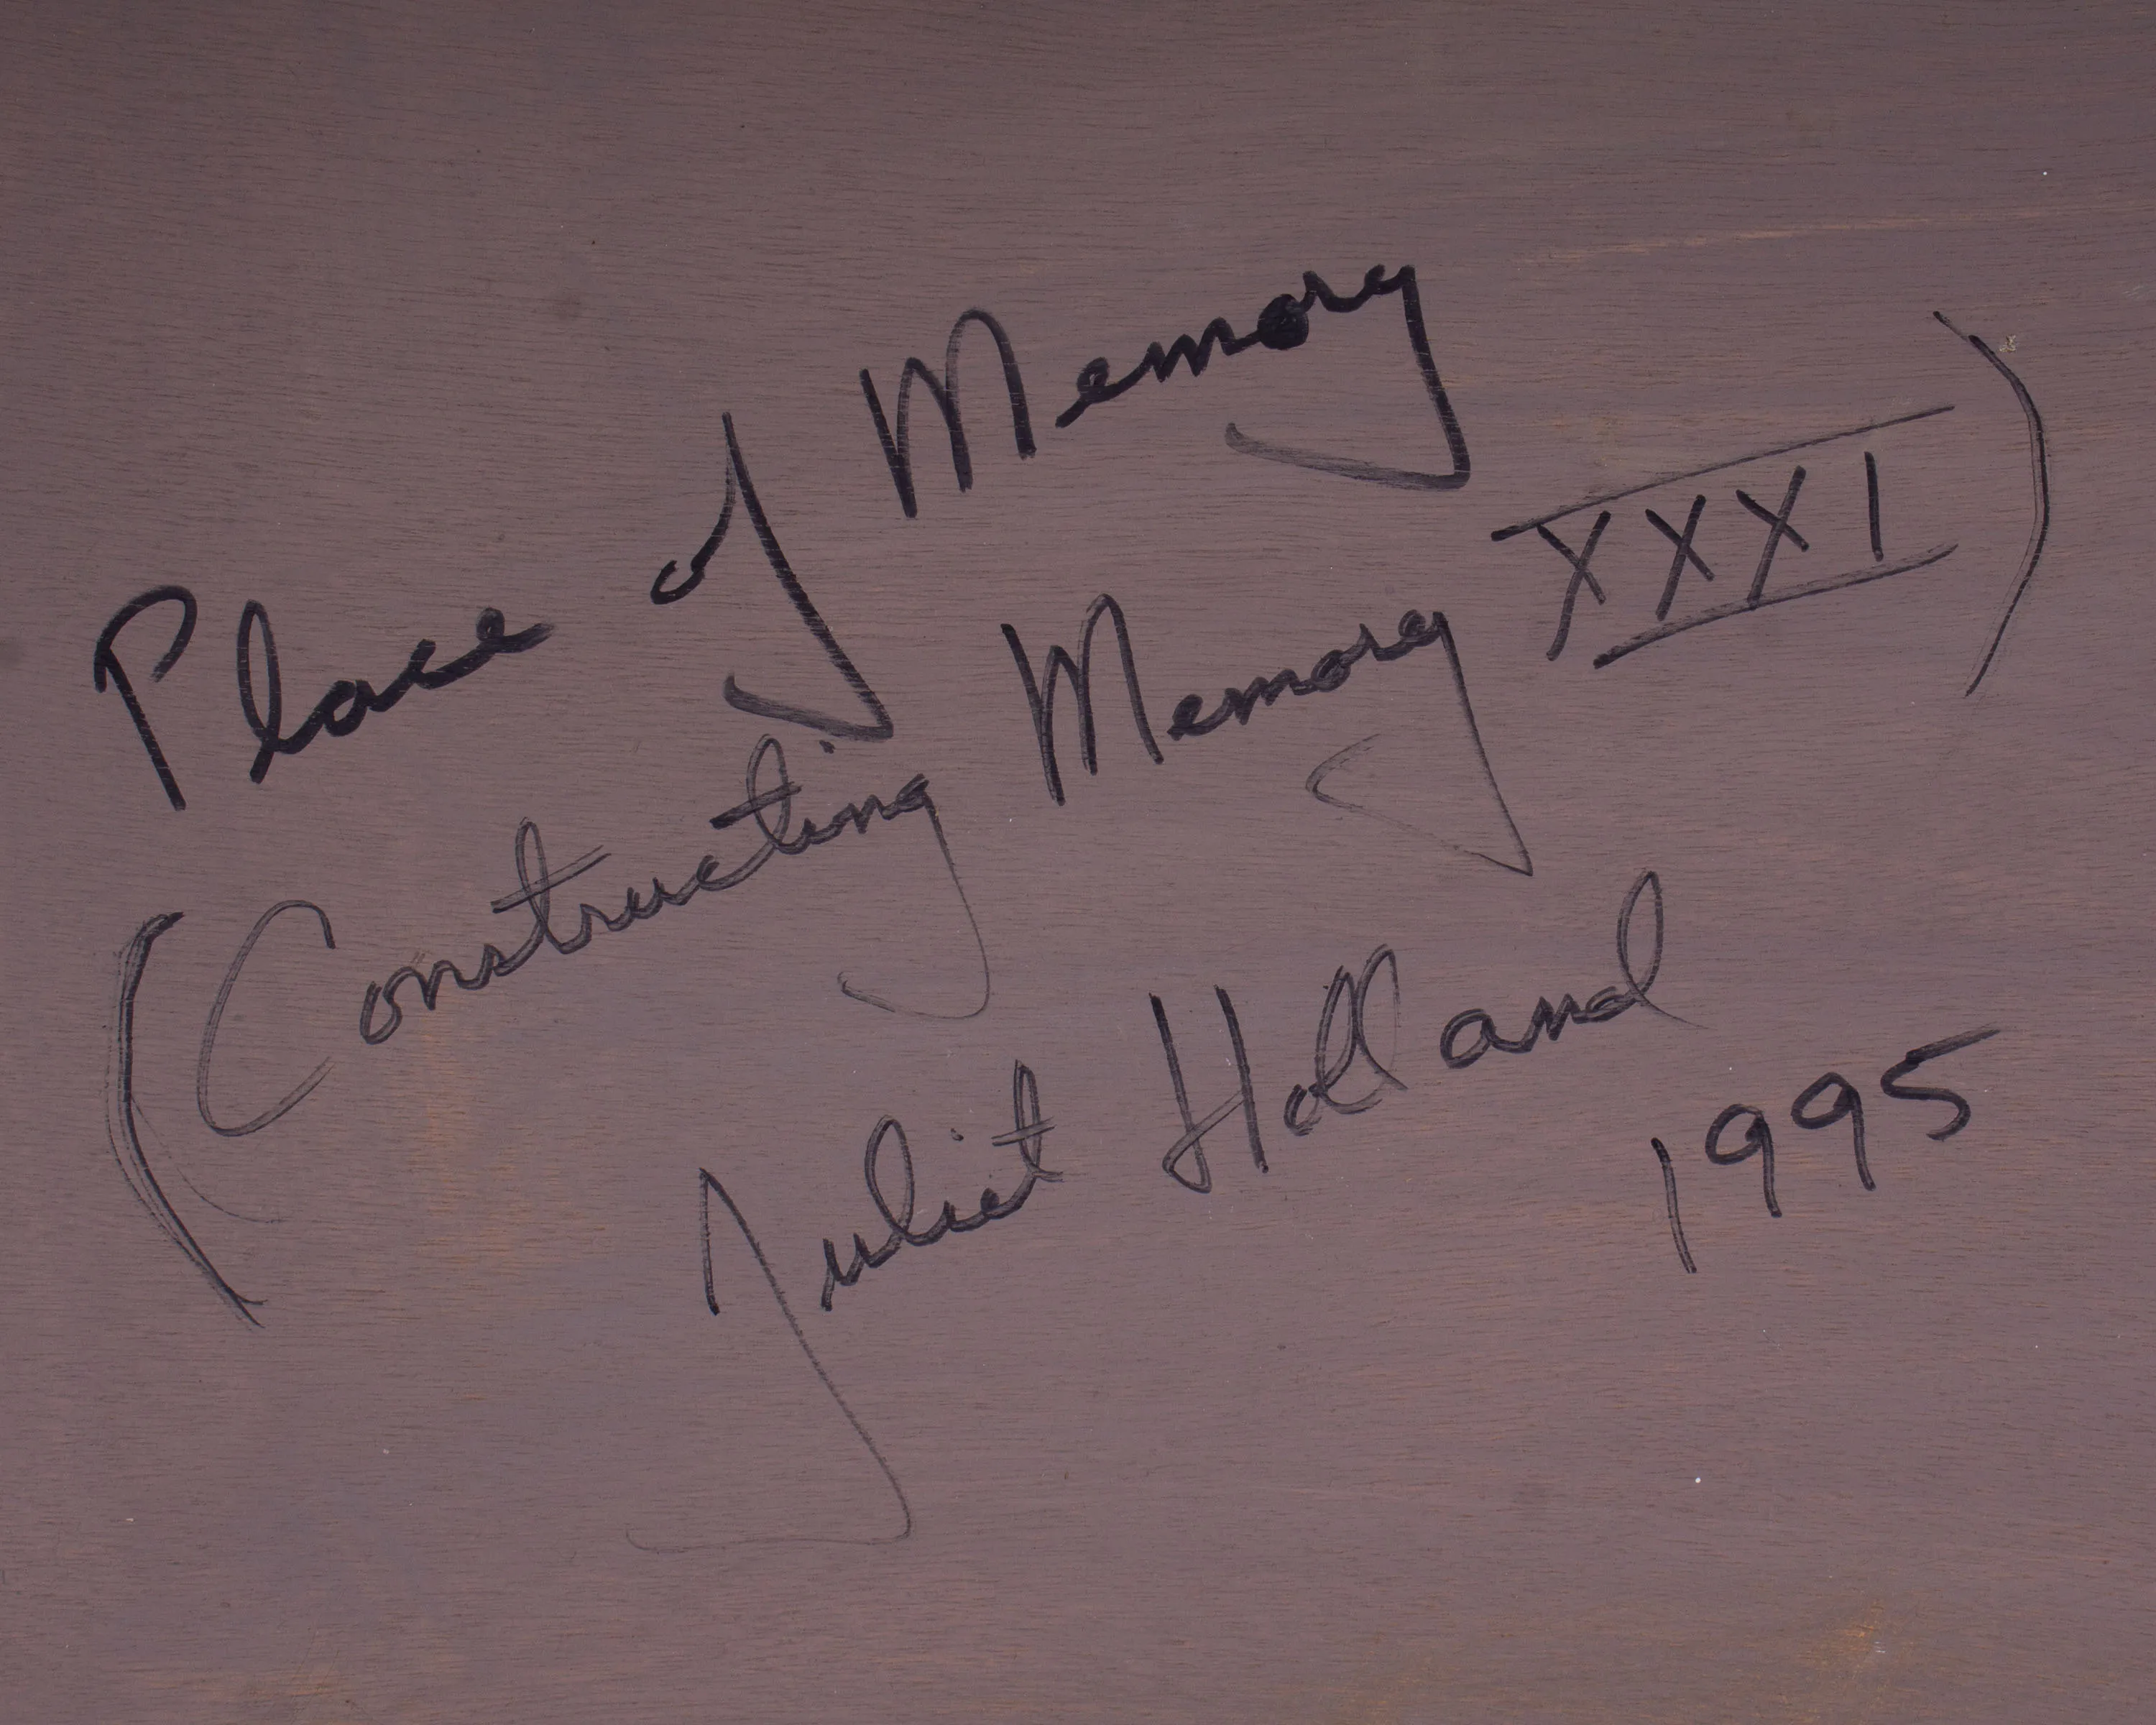 Place of Memory
(Constructing Memory XXXI)
Juliet Holland
1995